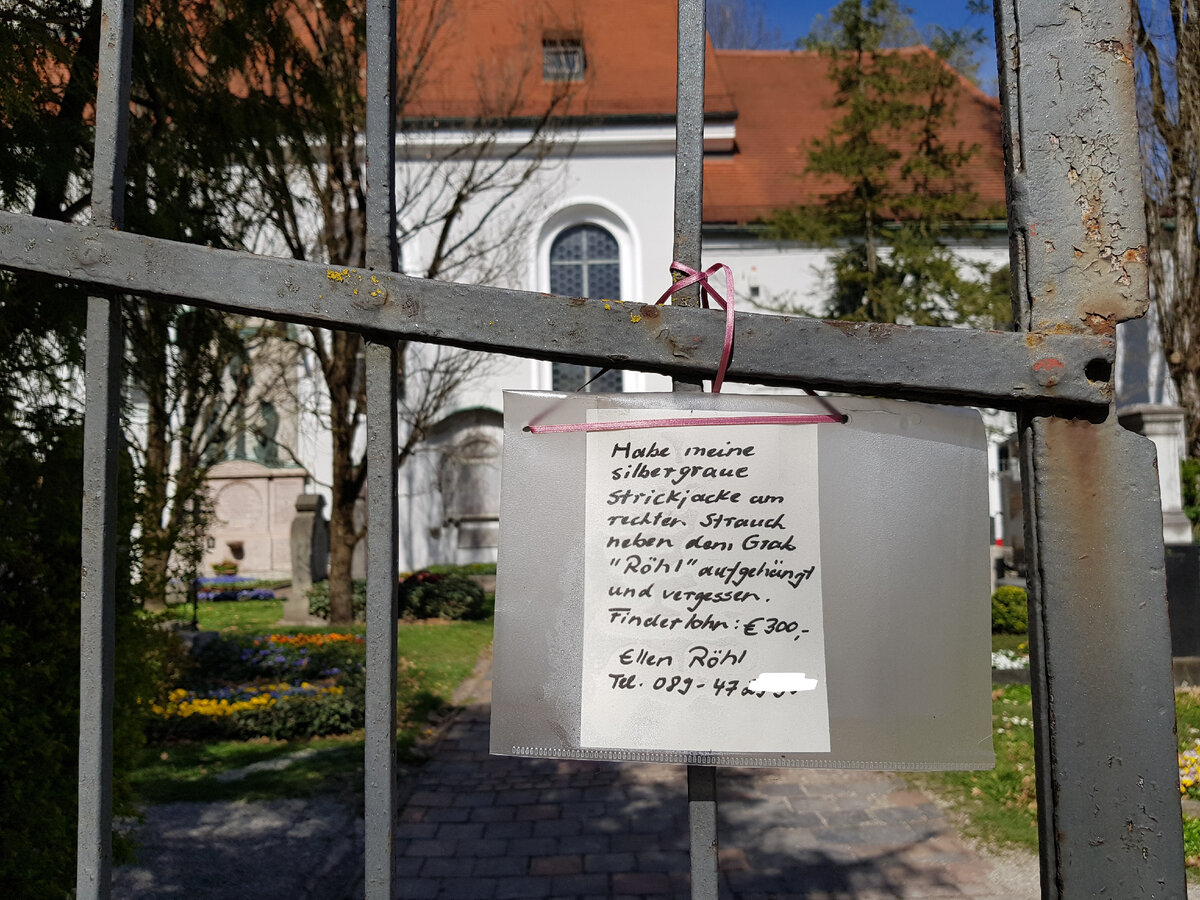 Habe meine
silbergraue
Strickjacke am
rechten Strauch
neben dem Grab
"Röhl" aufgehängt
und vergessen.
Finderlohn: € 300,-
Ellen Röhl
Tel. 089-47